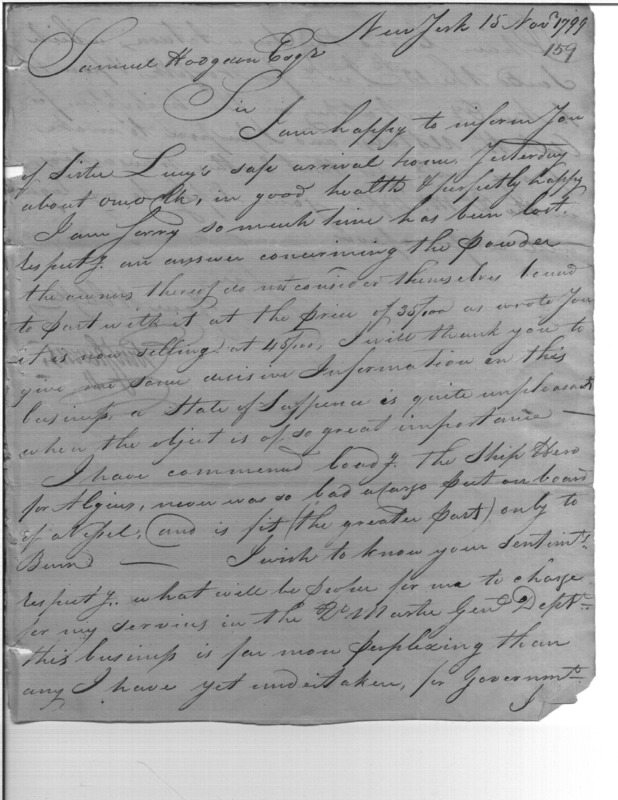 New York 15 Novr. 1799
159
Samuel Hodgdon Esqr
Sir
I am happy to inform You
of Sister Lucy's safe arrival home Yesterday
about o'Clk, in good health & perfectly happy
I am Sorry so much time has been lost,
respectg. an answer concerning the powder
the owners thereof do not consider themselves bound
to part with it at the price of 35/100 as wrote You
it is now selling at 45/100, I will thank you to
give me some decisive Information on this
business, a State of Suspence is quite unpleasant
when the object is of so great importance —
I have commenced loadg. the Ship Hero
for Algiers, never was so bad a cargo put on board
of a Vessel, and is fit (the greater part) only to
Burn — I wish to know your sentimts.
respectg. what will be proper for me to charge
for my services in the Qr. Master Genl. Deptmt.
this business is far more perplexing than
any I have yet undertaken, for Governmt.
I —